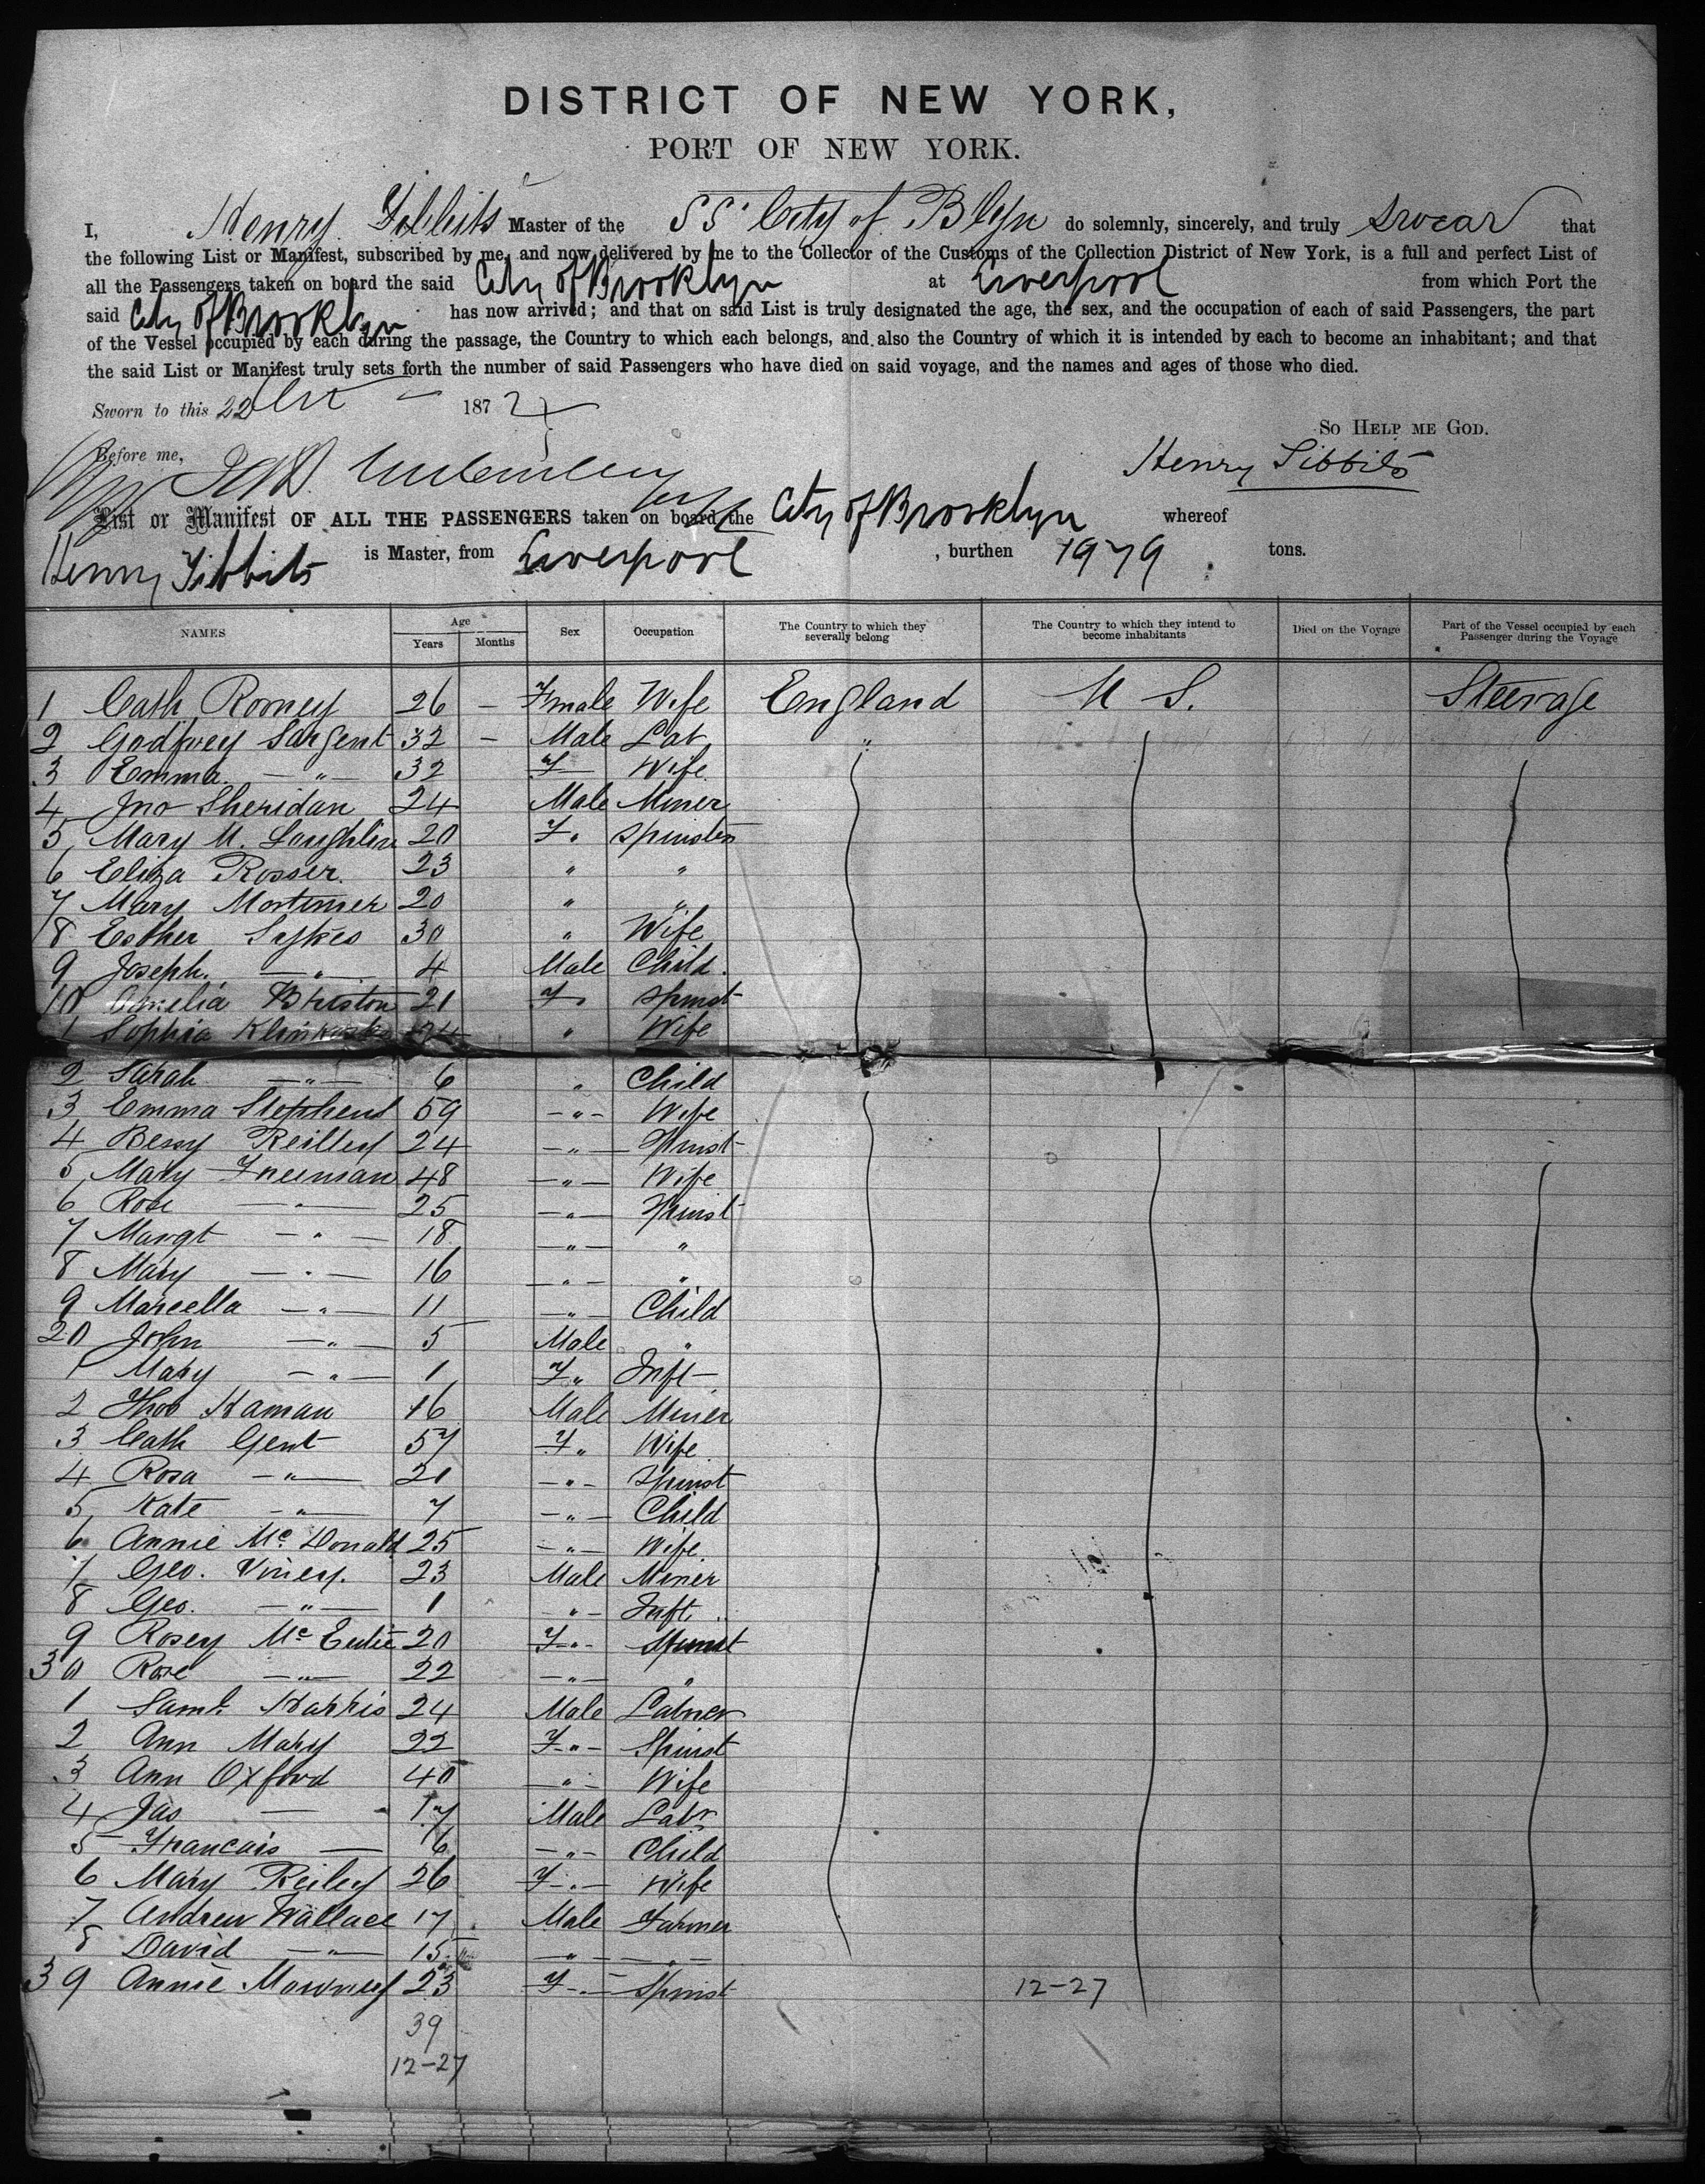 DISTRICT OF NEW YORK,
PORT OF NEW YORK.
I, Henry Tibbits Master of the SS City of Blyn do solemnly, sincerely, and truly Swear that
the following List or Manifest, subscribed by me, and now delivered by me to the Collector of the Customs of the Collection District of New York, is a full and perfect List of
all the Passengers taken on board the said City of Brooklyn at Liverpool from which Port the
said City of Brooklyn has now arrived; and that on said List is truly designated the age, the sex, and the occupation of each of said Passengers, the part
of the Vessel occupied by each during the passage, the Country to which each belongs, and also the Country of which it is intended by each to become an inhabitant; and that
the said List or Manifest truly sets forth the number of said Passengers who have died on said voyage, and the names and ages of those who died.
Sworn to this 22 Oct 187
So Help me God.
Before me,
Henry Tibbits
List or Manifest OF ALL THE PASSENGERS taken on board the City of Brooklyn whereof
Henry Tibbits is Master, from Liverpool, burthen 1979 tons.
NAMES Age Years Months Sex Occupation The Country to which they severally belong The Country to which they intend to become inhabitants Died on the Voyage Part of the Vessel occupied by each Passenger during the Voyage
1 Cath Romey 26 - Fmale Wife England U S. Steerage
2 Godfrey Sargent 32 - Male Lab "
3 Emma - " - 32 F Wife
4 Jno Sheridan 24 Male Miner
5 Mary M. Loughlin 20 F. Spinster
6 Eliza Rosser. 23 " "
7 Mary Mortimer 20 " "
8 Esther Sykes 30 " Wife
9 Joseph. - " - 4 Male Child.
10 Amelia 21 F. Spinst
1 Sophia " Wife
2 Sarah - " - 6 " Child
3 Emma Stephens 59 - " - Wife
4 Bessy Reilley 24 - " - Spinst
5 Mary Freeman 48 - " - Wife
6 Rose - " - 25 - " - Spinst
7 Margt - " - 18 - " - "
8 Mary - " - 16 - " - "
9 Marcella - " - 11 - " - Child
20 John - " - 5 Male "
1 Mary - " - 1 F " Inft
2 Thos Haman 16 Male Miner
3 Cath Gent 57 F " Wife
4 Rosa - " - 21 - " - Spinst
5 Kate - " - 7 - " - Child
6 Annie Mc Donald 25 - " - Wife
7 Geo. Viney. 23 Male Miner
8 Geo. - " - 1 - " - Inft
9 Rosey Mc 20 F - " - Spinst
30 Rose - " - 22 - " - "
1 Saml. Harris 24 Male Labner
2 Ann Mary 22 F - " - Spinst
3 Ann Oxford 40 - " - Wife
4 Jas - " 17 Male Labr
5 Francais - 6 - " - Child
6 Mary Reiley 26 F - " - Wife
7 Andrew Wallace 17 Male Farmer
8 David - " - 15 - " - - " -
39 Annie Mowney 23 F - " - Spinst 12-27
39
12-27